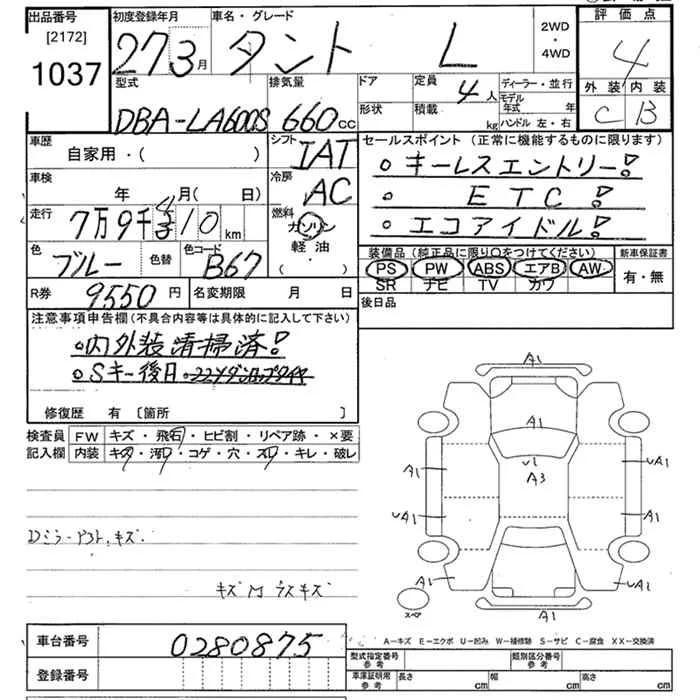 出品番号
[2172]
1037
初度登録年月
27 3月
車名・グレード
タント L
2WD
・
4WD
評価点
4
外装 内装
C B
型式
DBA-LA600S
排気量
660cc
ドア
形状
定員
4人
積載 kg
ディーラー・並行
モデル
年式 年
ハンドル 左・右
車歴
自家用・( )
シフト
IAT
車検
年 月(日)
冷房
AC
走行
7万9千 10km
燃料
ガソリン
軽油
・( )
色
ブルー
色替
色コード
B67
R券
9550円
名変期限 月 日
セールスポイント (正常に機能するものに限ります)
。キーレスエントリー!
。ETC!
。エコアイドル!
装備品 (純正品に限り○をつけてください)
新車保証書
PS PW ABS エアB AW
SR ナビ TV カワ
有・無
後日品
注意事項申告欄(不具合内容等は具体的に記入して下さい)
。内外装清掃済!
。Sキー後日
修復歴 有 〔箇所 〕
検査員
記入欄
FW キズ・飛石・ヒビ割・リペア跡・×要
内装 キズ・汚レ・コゲ・穴・スレ・キレ・破レ
Dミラー キズ.
A1
A1
A1
A3
A1
A1
A1
A1
A1
A1
A1
A1
スペア
車台番号
0280875
登録番号
A－キズ E－エクボ U－凹み W－補修跡 S－サビ C－腐食 XX－交換済
型式指定番号
参考
類別区分番号
参考
車庫証明用
参考
長さ cm
幅 cm
高さ cm